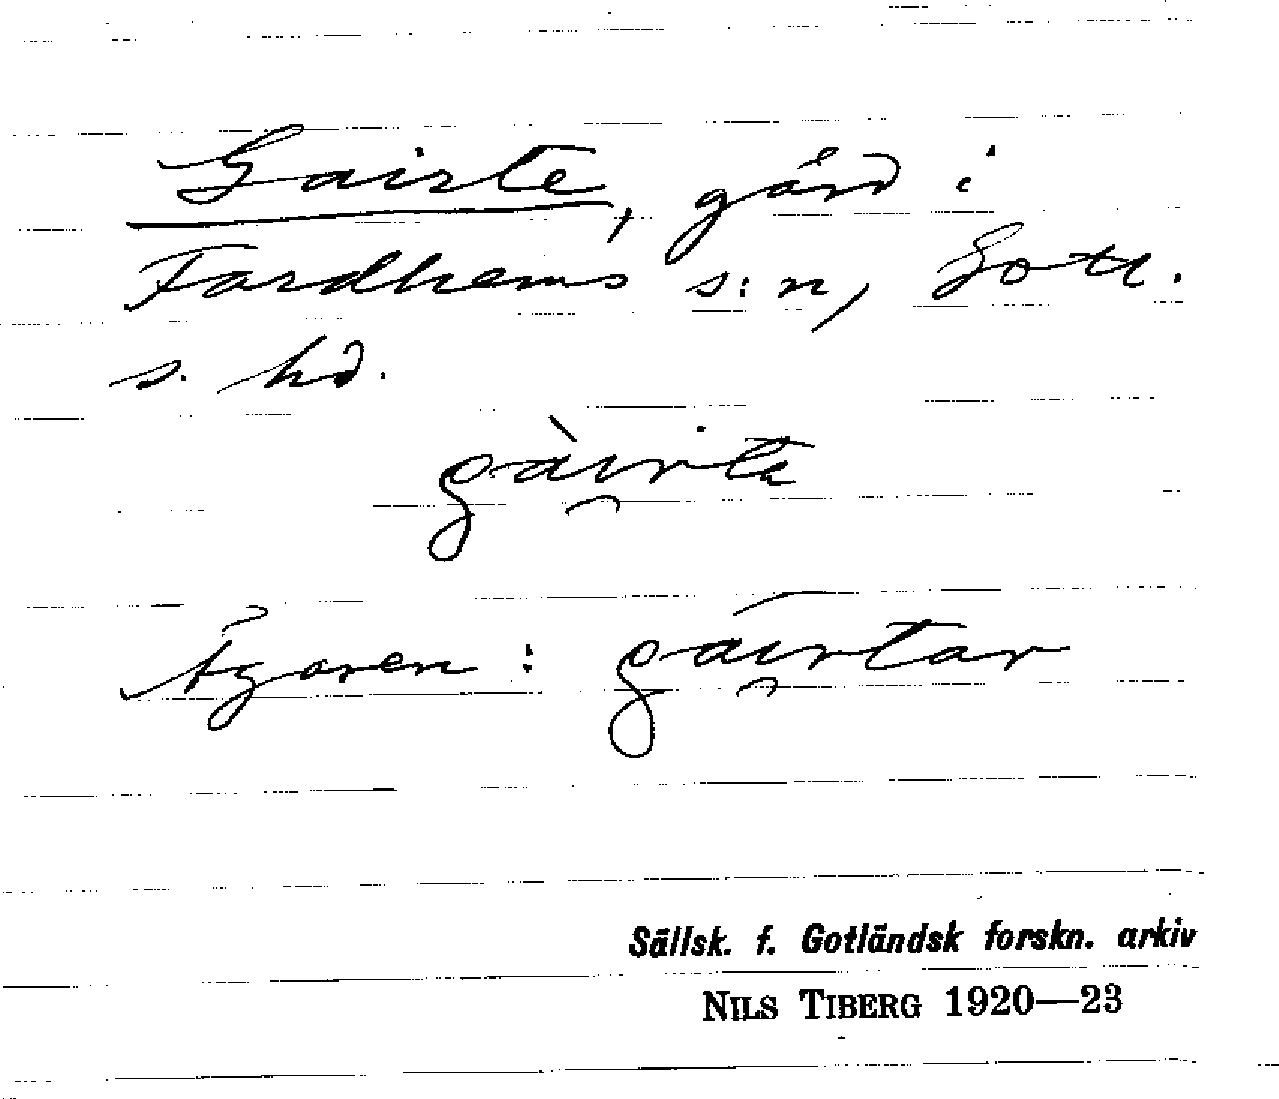 Gairte, gård i
Fardhems s:n, Gotl.
s. hd.
gàirta
Ägaren: gāirtar
Sällsk. f. Gotländsk forskn. arkiv
NILS TIBERG 1920—23